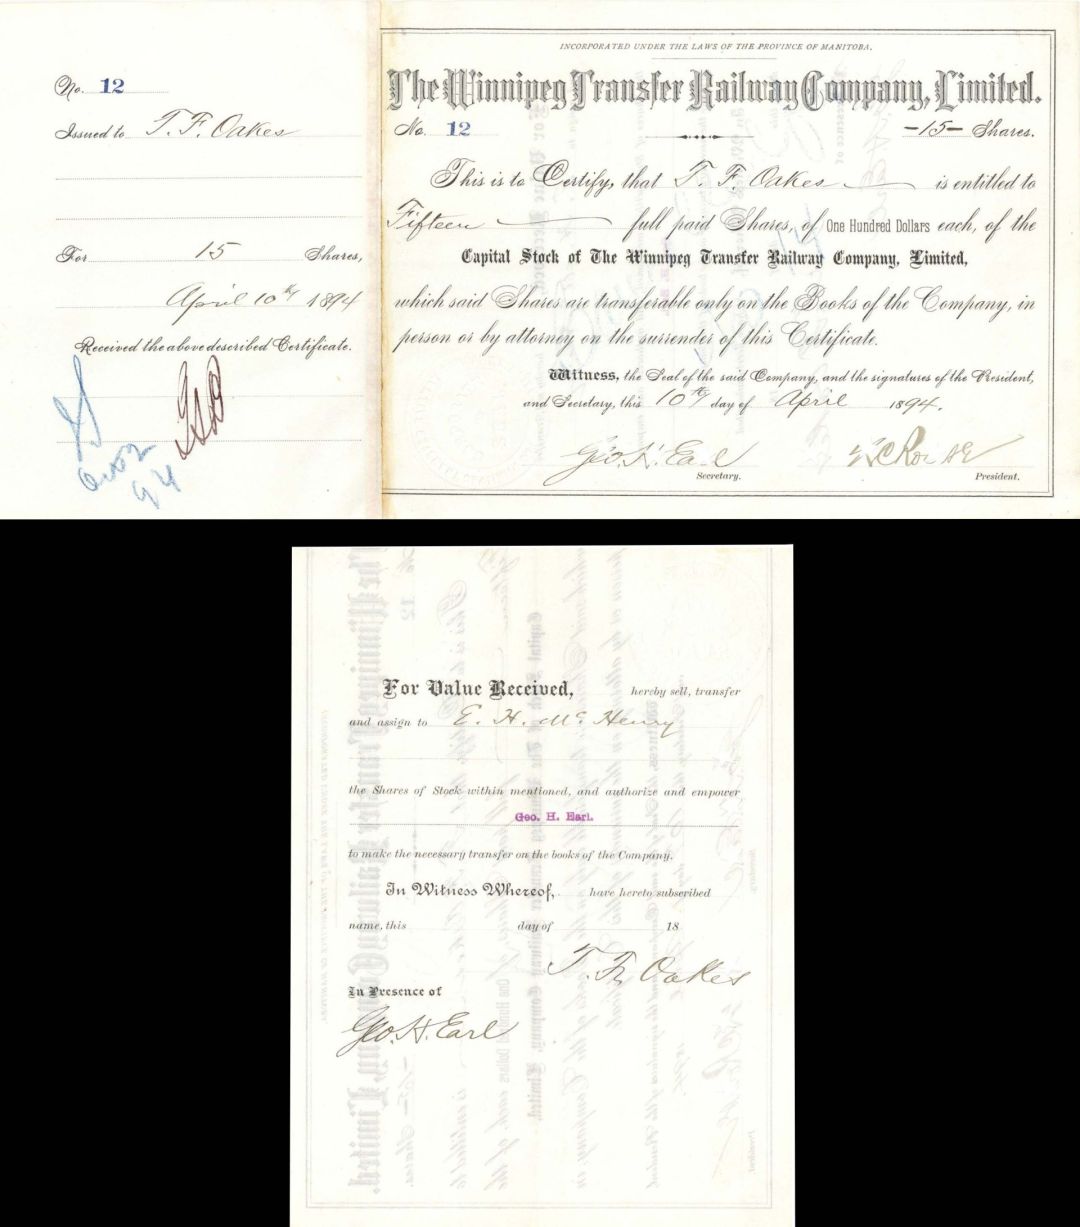 No. 12
Issued to T. F. Oakes
For 15 Shares,
April 10th 1894
Received the above described Certificate.
94
INCORPORATED UNDER THE LAWS OF THE PROVINCE OF MANITOBA.
The Winnipeg Transfer Railway Company, Limited.
No. 12 -15- Shares.
This is to Certify, that T. F. Oakes is entitled to
Fifteen full paid Shares, of One Hundred Dollars each, of the
Capital Stock of The Winnipeg Transfer Railway Company, Limited,
which said Shares are transferable only on the Books of the Company, in
person or by attorney on the surrender of this Certificate.
Witness, the Seal of the said Company, and the signatures of the President,
and Secretary, this 10th day of April 1894.
Geo. H. Earl
Secretary. President.
For Value Received, hereby sell, transfer
and assign to E. H. McHenry
the Shares of Stock within mentioned, and authorize and empower
Geo. H. Earl.
to make the necessary transfer on the books of the Company.
In Witness Whereof, have hereto subscribed
name, this day of 18
T. F. Oakes
In Presence of
Geo. H. Earl